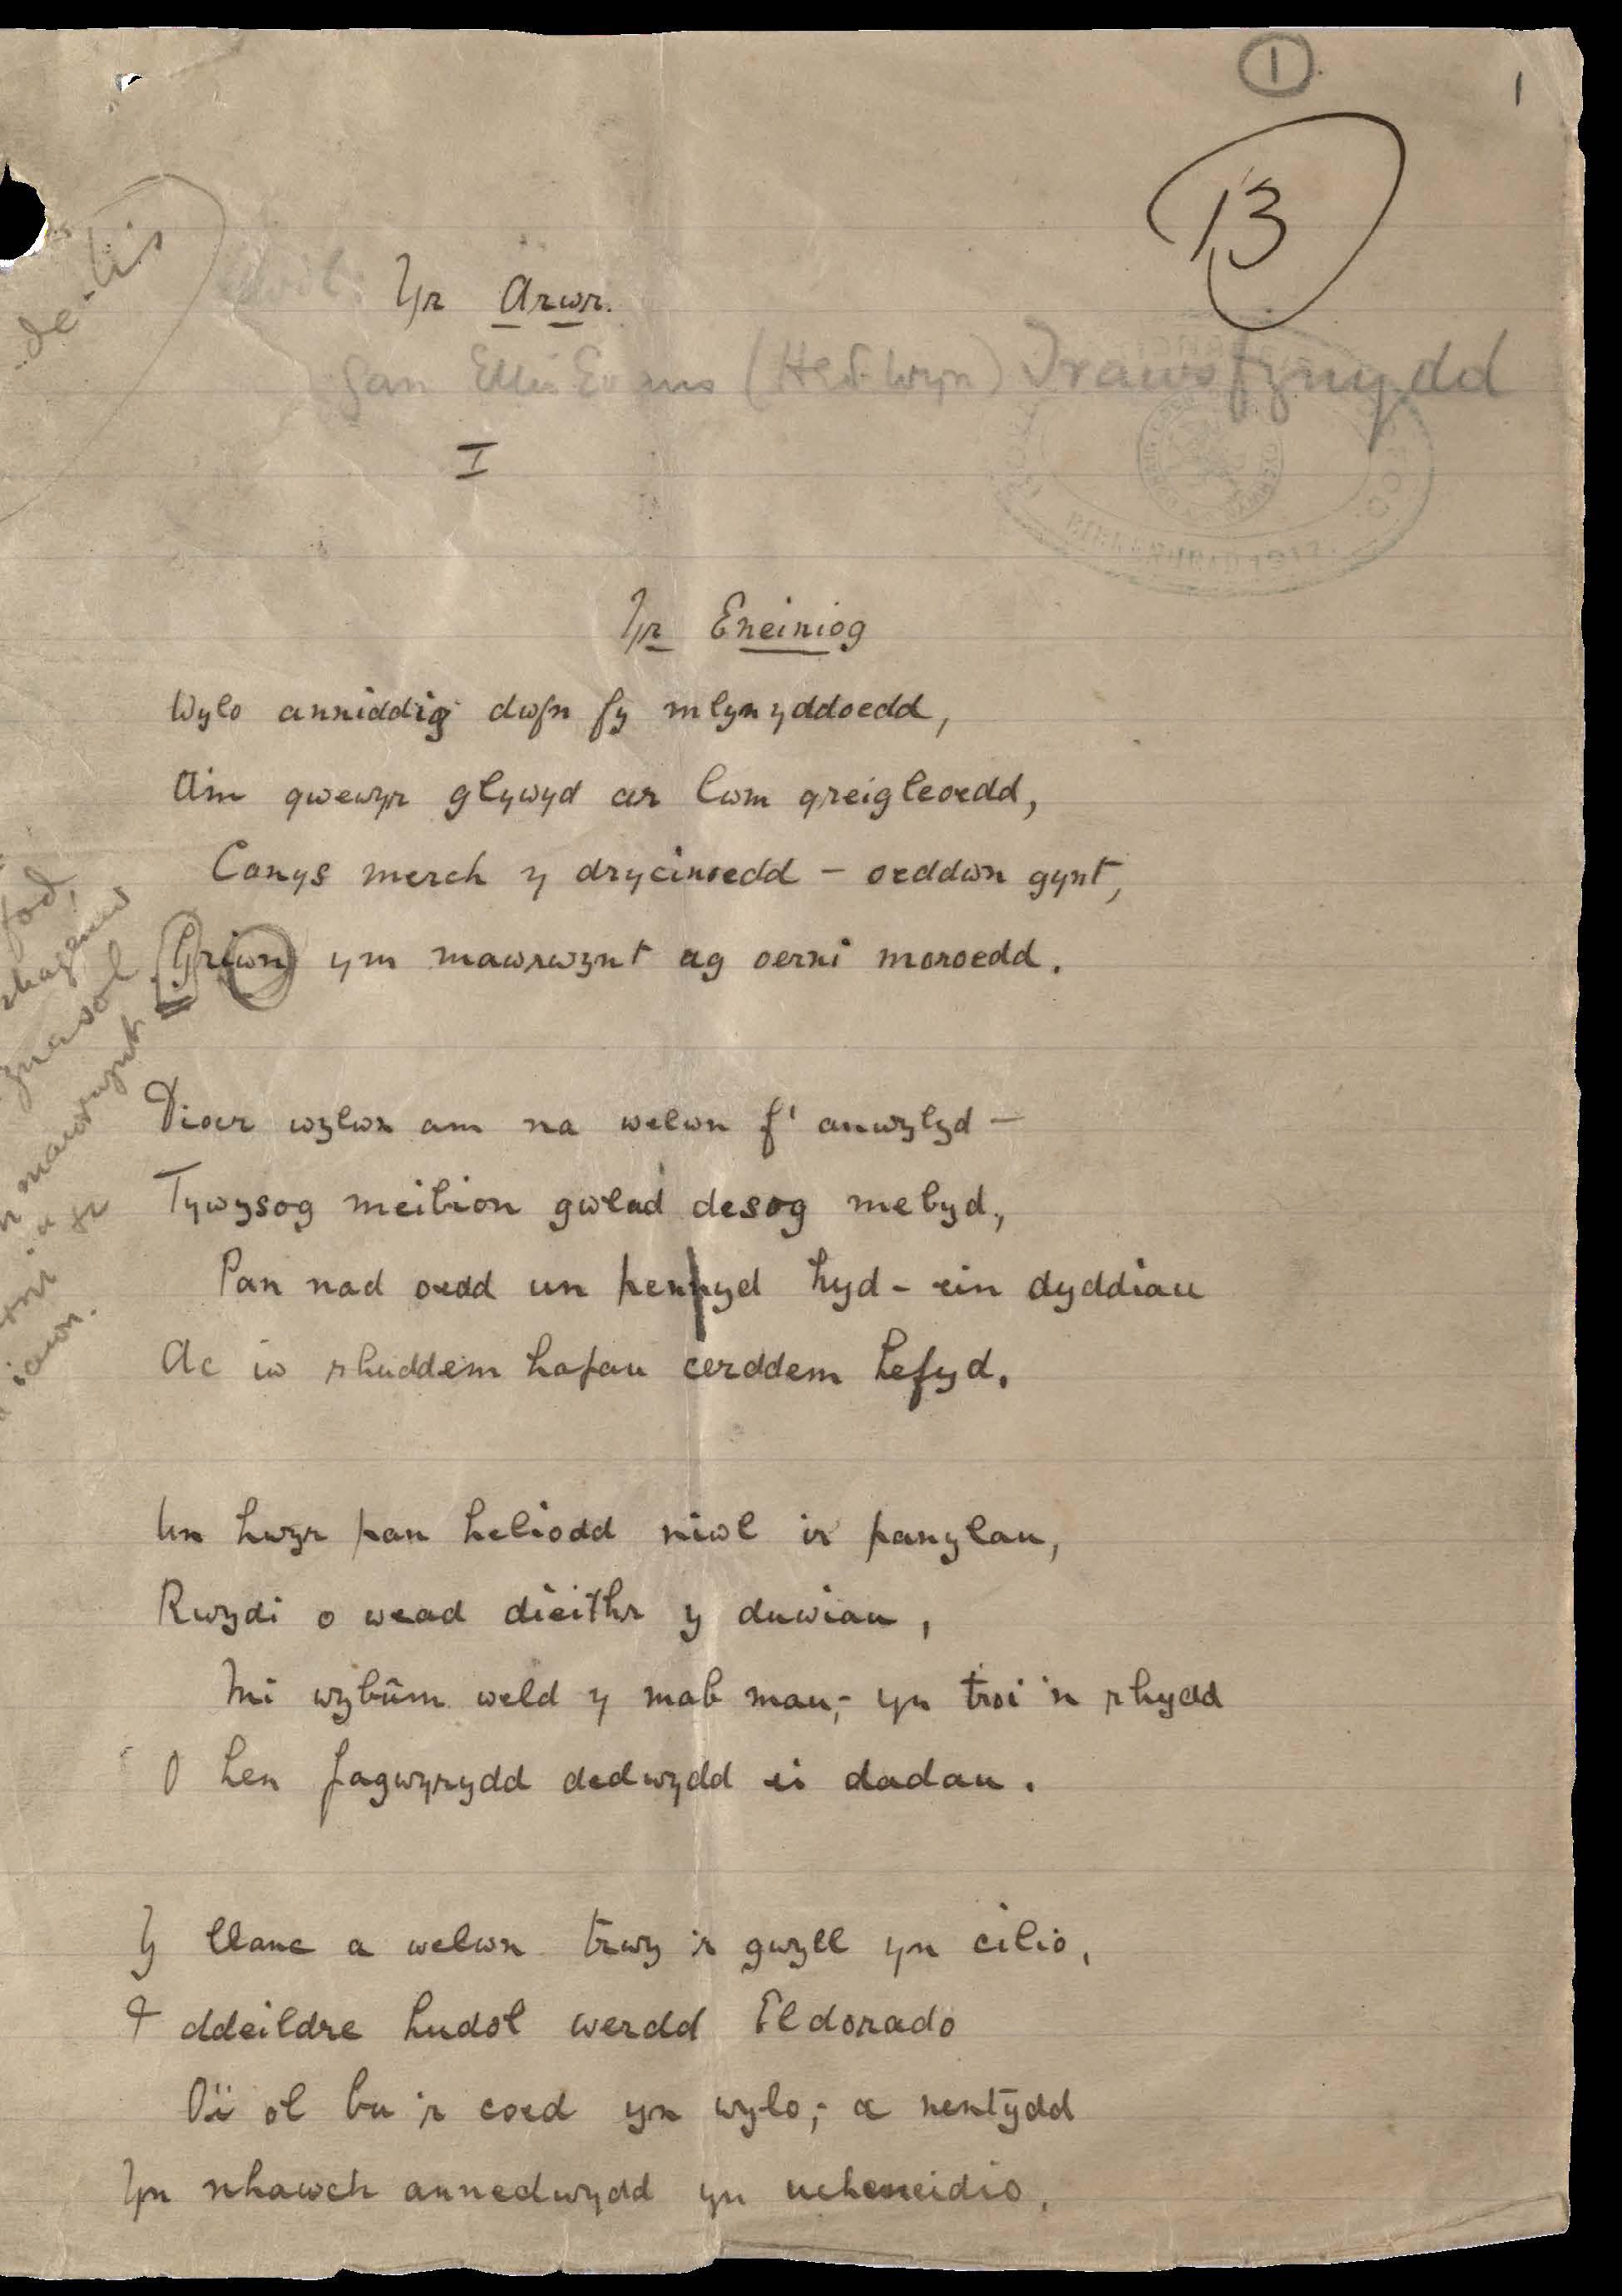 1
1
13
Yr Arwr.
Gan Ellis Evans (Hedd Wyn) Trawsfynydd
I
Yr Eneiniog
Wylo anniddig dwfn fy mlynyddoedd,
A'm gwewyr glywyd ar lwm greigleoedd,
Canys merch y drycinoedd – oeddwn gynt,
Griwn ym mawrwynt ag oerni moroedd.
Dioer wylwn am na welwn f' anwylyd –
Tywysog meibion gwlad desog mebyd,
Pan nad oedd un pennyd hyd – ein dyddiau
Ac iw rhuddem hafau cerddem hefyd.
Un hwyr pan heliodd niwl i'r panylau,
Rwydi o wead dieithr y duwiau,
Mi wybûm weld y mab mau, – yn troi 'n rhydd
O hen fagwyrydd dedwydd ei dadau.
Y llanc a welwn trwy 'r gwyll yn cilio,
I ddeildre hudol werdd Eldorado
O'i ol bu 'r coed yn wylo, – a nentydd
Yn nhawch annedwydd yn ucheneidio.
mawrwynt
iawn.